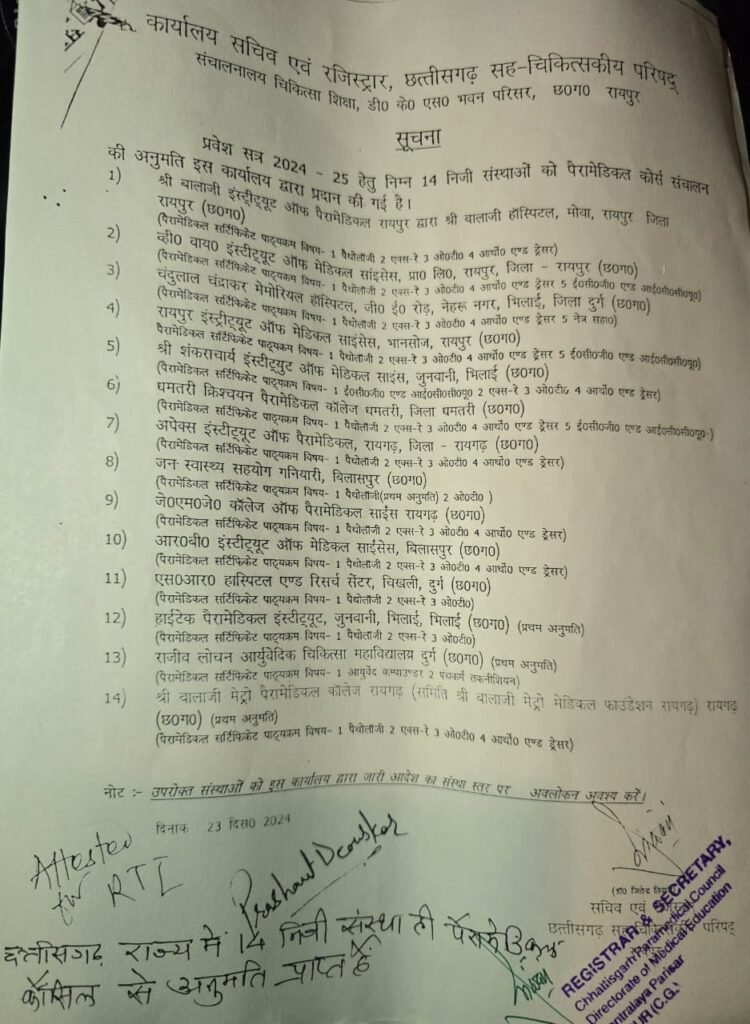 कार्यालय सचिव एवं रजिस्ट्रार, छत्तीसगढ़ सह-चिकित्सकीय परिषद्
संचालनालय चिकित्सा शिक्षा, डी0 के0 एस0 भवन परिसर, छ0ग0 रायपुर
सूचना
प्रवेश सत्र 2024 - 25 हेतु निम्न 14 निजी संस्थाओं को पैरामेडिकल कोर्स संचालन
की अनुमति इस कार्यालय द्वारा प्रदान की गई है।
1) श्री बालाजी इंस्टीट्यूट ऑफ पैरामेडिकल रायपुर द्वारा श्री बालाजी हॉस्पिटल, मोवा, रायपुर जिला
रायपुर (छ0ग0)
(पैरामेडिकल सर्टिफिकेट पाठ्यक्रम विषय- 1 पैथोलॉजी 2 एक्स-रे 3 ओ0टी0 4 आर्थो0 एण्ड ड्रेसर)
2) व्ही0 वाय0 इंस्टीट्यूट ऑफ मेडिकल सांइसेस, प्रा0 लि0, रायपुर, जिला - रायपुर (छ0ग0)
(पैरामेडिकल सर्टिफिकेट पाठ्यक्रम विषय- 1 पैथोलॉजी 2 एक्स-रे 3 ओ0टी0 4 आर्थो0 एण्ड ड्रेसर 5 ई0सी0जी0 एण्ड आई0सी0सी0यू0)
3) चंदुलाल चंद्राकर मेमोरियल हॉस्पिटल, जी0 ई0 रोड़, नेहरू नगर, भिलाई, जिला दुर्ग (छ0ग0)
(पैरामेडिकल सर्टिफिकेट पाठ्यक्रम विषय- 1 पैथोलॉजी 2 एक्स-रे 3 ओ0टी0 4 आर्थो0 एण्ड ड्रेसर 5 नेत्र सहा0)
4) रायपुर इंस्ट्रीट्यूट ऑफ मेडिकल साइंसेस, भानसोज, रायपुर (छ0ग0)
पैरामेडिकल सर्टिफिकेट पाठ्यक्रम विषय- 1 पैथोलॉजी 2 एक्स-रे 3 ओ0टी0 4 आर्थो0 एण्ड ड्रेसर 5 ई0सी0जी0 एण्ड आई0सी0सी0यू0)
5) श्री शंकराचार्य इंस्टीट्युट ऑफ मेडिकल साइंस, जुनवानी, भिलाई (छ0ग0)
(पैरामेडिकल सर्टिफिकेट पाठ्यक्रम विषय- 1 ई0सी0जी0 एण्ड आई0सी0सी0यू 2 एक्स-रे 3 ओ0टी0 4 आर्थो0 एण्ड ड्रेसर)
6) धमतरी क्रिश्चयन पैरामेडिकल कॉलेज धमतरी, जिला धमतरी (छ0ग0)
(पैरामेडिकल सर्टिफिकेट पाठ्यक्रम विषय- 1 पैथोलॉजी 2 एक्स-रे 3 ओ0टी0 4 आर्थो0 एण्ड ड्रेसर 5 ई0सी0जी0 एण्ड आई0सी0सी0यू0-)
7) अपेक्स इंस्टीट्यूट ऑफ पैरामेडिकल, रायगढ़, जिला - रायगढ़ (छ0ग0)
(पैरामेडिकल सर्टिफिकेट पाठ्यक्रम विषय- 1 पैथोलॉजी 2 एक्स-रे 3 ओ0टी0 4 आर्थो0 एण्ड ड्रेसर)
8) जन स्वास्थ्य सहयोग गनियारी, बिलासपुर (छ0ग0)
(पैरामेडिकल सर्टिफिकेट पाठ्यक्रम विषय- 1 पैथोलॉजी(प्रथम अनुमति) 2 ओ0टी0 )
9) जे0एम0जे0 कॉलेज ऑफ पैरामेडिकल साईंस रायगढ़ (छ0ग0)
(पैरामेडिकल सर्टिफिकेट पाठ्यक्रम विषय- 1 पैथोलॉजी 2 एक्स-रे 3 ओ0टी0 4 आर्थो0 एण्ड ड्रेसर)
10) आर0बी0 इंस्टीट्यूट ऑफ मेडिकल साईंसेस, बिलासपुर (छ0ग0)
(पैरामेडिकल सर्टिफिकेट पाठ्यक्रम विषय- 1 पैथोलॉजी 2 एक्स-रे 3 ओ0टी0 4 आर्थो0 एण्ड ड्रेसर)
11) एस0आर0 हास्पिटल एण्ड रिसर्च सेंटर, चिखली, दुर्ग (छ0ग0)
(पैरामेडिकल सर्टिफिकेट पाठ्यक्रम विषय- 1 पैथोलॉजी 2 एक्स-रे 3 ओ0टी0)
12) हाईटेक पैरामेडिकल इंस्टीट्यूट, जुनवानी, भिलाई, भिलाई (छ0ग0) (प्रथम अनुमति)
(पैरामेडिकल सर्टिफिकेट पाठ्यक्रम विषय- 1 पैथोलॉजी 2 एक्स-रे 3 ओ0टी0)
13) राजीव लोचन आर्युवेदिक चिकित्सा महाविद्यालय दुर्ग (छ0ग0) (प्रथम अनुमति)
(पैरामेडिकल सर्टिफिकेट पाठ्यक्रम विषय- 1 आयुर्वेद कम्पाउण्डर 2 पंचकर्म तकनीशियन)
14) श्री बालाजी मेट्रो पैरामेडिकल कॉलेज रायगढ़ (समिति श्री बालाजी मेट्रो मेडिकल फाउंडेशन रायगढ़) रायगढ़
(छ0ग0) (प्रथम अनुमति)
(पैरामेडिकल सर्टिफिकेट पाठ्यक्रम विषय- 1 पैथोलॉजी 2 एक्स-रे 3 ओ0टी0 4 आर्थो0 एण्ड ड्रेसर)
नोट :- उपरोक्त संस्थाओं को इस कार्यालय द्वारा जारी आदेश का संस्था स्तर पर अवलोकन अवश्य करें।
दिनांक 23 दिस0 2024
Attested
for RTI
Prashant
(डा0 जितेन्द्र
सचिव एवं
छत्तीसगढ़ सह-चिकित्सकीय परिषद्
छत्तीसगढ़ राज्य में 14 निजी संस्था ही
कौंसिल से अनुमति प्राप्त है
REGISTRAR & SECRETARY,
Chhattisgarh Paramedical Council
Directorate of Medical Education
Parisar
(C.G.)